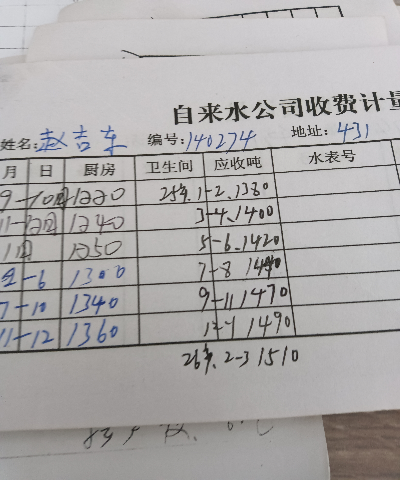 自来水公司收费计量
姓名:赵吉车 编号:140274 地址:431
月 日 厨房 卫生间 应收吨 水表号
9-10月 1220 25年.1-2.1380
11-12月 1240 3-4.1400
1月 1250 5-6.1420
2-6 1300 7-8 1440
7-10 1340 9-11 1470
11-12 1360 12-1 1490
26年.2-3 1510